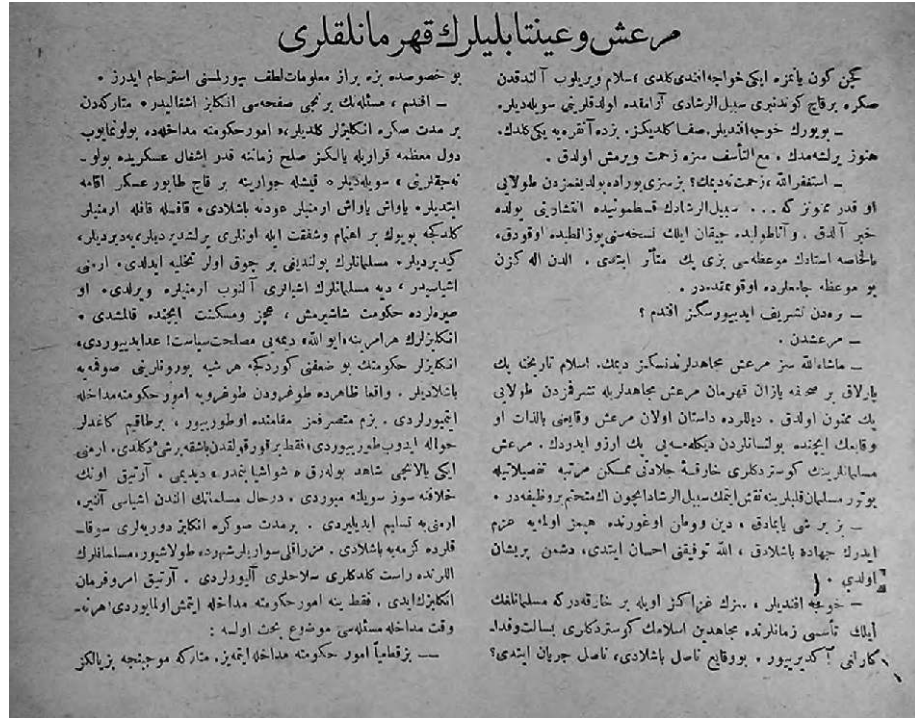 مرعش وعينتابليلرك قهرمانلقلرى
كچن كون يانمزه ايكى خواجه افندى كلدى ، سلام ويريلوب آلندقدن
صكره برقاچ كوندنبرى سبيل الرشادى آرامقده اولدقلرينى سويله ديلر.
ــ بويورك خوجه افنديلر. صفا كلديكز. بزده آنقره يه يكى كلدك.
هنوز يرلشه مدك . مع التأسف سزه زحمت ويرمش اولدق .
ــ استغفرالله ، زحمت نه ديمك؟ بز سزى بوراده بولديغمزدن طولايى
او قدر ممنونز كه . . . سبيل الرشادك قسطمونيده انتشارينى يولده
خبر آلدق . وآناطوليده چيقان ايلك نسخه سنى يوزغادده اوقودق .
بالخاصه استادك موعظه سى بزى پك متأثر ايتدى . الدن اله كزن
بو موعظه جامعلرده اوقونمقده در .
ــ نره دن تشريف ايديييورسكز افندم ؟
ــ مرعشدن .
ــ ماشاءالله سز مرعش مجاهدلرندنسكز ديمك. اسلام تاريخنه پك
پارلاق بر صحفه يازان قهرمان مرعش مجاهدلريله تشرفمزدن طولايى
پك ممنون اولدق . ديللرده داستان اولان مرعش وقايعنى بالذات او
وقايعك ايچنده بولنانلردن ديكله مه يى پك آرزو ايدردك . مرعش
مسلمانلرينك كوستردكلرى خارقۀ جلادتى ممكن مرتبه تفصيلاتيله
بوتون مسلمان قلبلرينه نقش ايتمك سبيل الرشاد ايچون اك متحتم بر وظيفه در .
ــ بز بر شى يامادق ، دين ووطن اوغورنده هپمز اولمه يه عزم
ايدرك جهاده باشلادق ، الله توفيقنى احسان ايتدى ، دشمن پريشان
اولدى .
ــ خوجه افنديلر ، سزك غزاكز اويله بر خارقه دركه مسلمانلغك
ايلك تأسسى زمانلرنده مجاهدين اسلامك كوستردكلرى بسالت وفدا-
كارانى آكديرييور . بو وقايع ناصل باشلادى، ناصل جريان ايتدى؟
بو خصوصده بزه براز معلومات لطف بيورلمسنى استرحام ايدرز .
ــ افندم ، مسئله نك برنجى صفحه سى انكليز اشغاليدر . متاركه دن
بر مدت صكره انكليزلر كلديلر ، امور حكومته مداخله ده بولونمايوب
دول معظمه قراريله يالكز صلح زماننه قدر اشغال عسكريده بولو-
نه جقلرينى ، سويله ديلر . قيشله جوارينه بر قاچ طابور عسكر اقامه
ايتديلر . ياواش ياواش ارمنيلر عودته باشلادى . قافله قافله ارمنيلر
كلدكجه بويوك بر اهتمام وشفقت ايله اونلرى يرلشديرديلر ، يديرديلر ،
كيديرديلر . مسلمانلرك بولنديغى بر چوق اولر تخليه ايدلدى . ارمنى
اشياسيدر ، ديه مسلمانلرك اشيالرى آلنوب ارمنيلره ويرلدى . او
صيره لرده حكومت شاشيرمش ، عجز ومسكنت ايچنده قالمشدى .
انكليزلرك هر امرينه « ايو الله » ديمه يى مصلحت سياست! عد ايديييوردى .
انكليزلر حكومتك بو ضعفنى كوردكجه هر شيه بورونلرينى صوقمه يه
باشلاديلر . واقعا ظاهرده طوغرودن طوغرويه امور حكومته مداخله
ايتميورلردى . بزم متصرفمز مقامنده اوطورييور ، برطاقيم كاغدلر
حواله ايدوب طورييوردى ، فقط بر قورقولقدن باشقه بر شى دكلدى . ارمنى
ايكى يالانجى شاهد بوله رق « شو اشيا بنمدر » ديديمى . آرتيق اونك
خلافنه سوز سويلنه ميوردى . درحال مسلمانك الندن اشياسى آلنير ،
ارمنى يه تسليم ايديليردى . بر مدت صوكره انكليز دوريه لرى سوقا-
قلرده كزمه يه باشلادى . مزراقلى سواريلر شهرده طولاشيور ، مسلمانلرك
اللرنده راست كلدكلرى سلاحلرى آليورلردى . آرتيق امر وفرمان
انكليزك ايدى . فقط ينه امور حكومته مداخله ايتمش اولمايوردى! هر نه-
وقت مداخله مسئله سى موضوع بحث اولسه :
ــ بز قطعياً امور حكومته مداخله ايتمه يز. متاركه موجبنجه بز يالكز